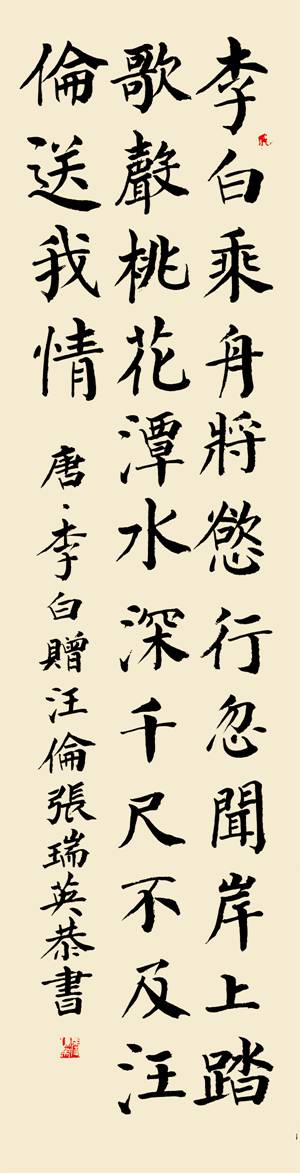 李白乘舟將慾行忽聞岸上踏
歌聲桃花潭水深千尺不及汪
倫送我情
唐·李白贈汪倫張瑞英恭書